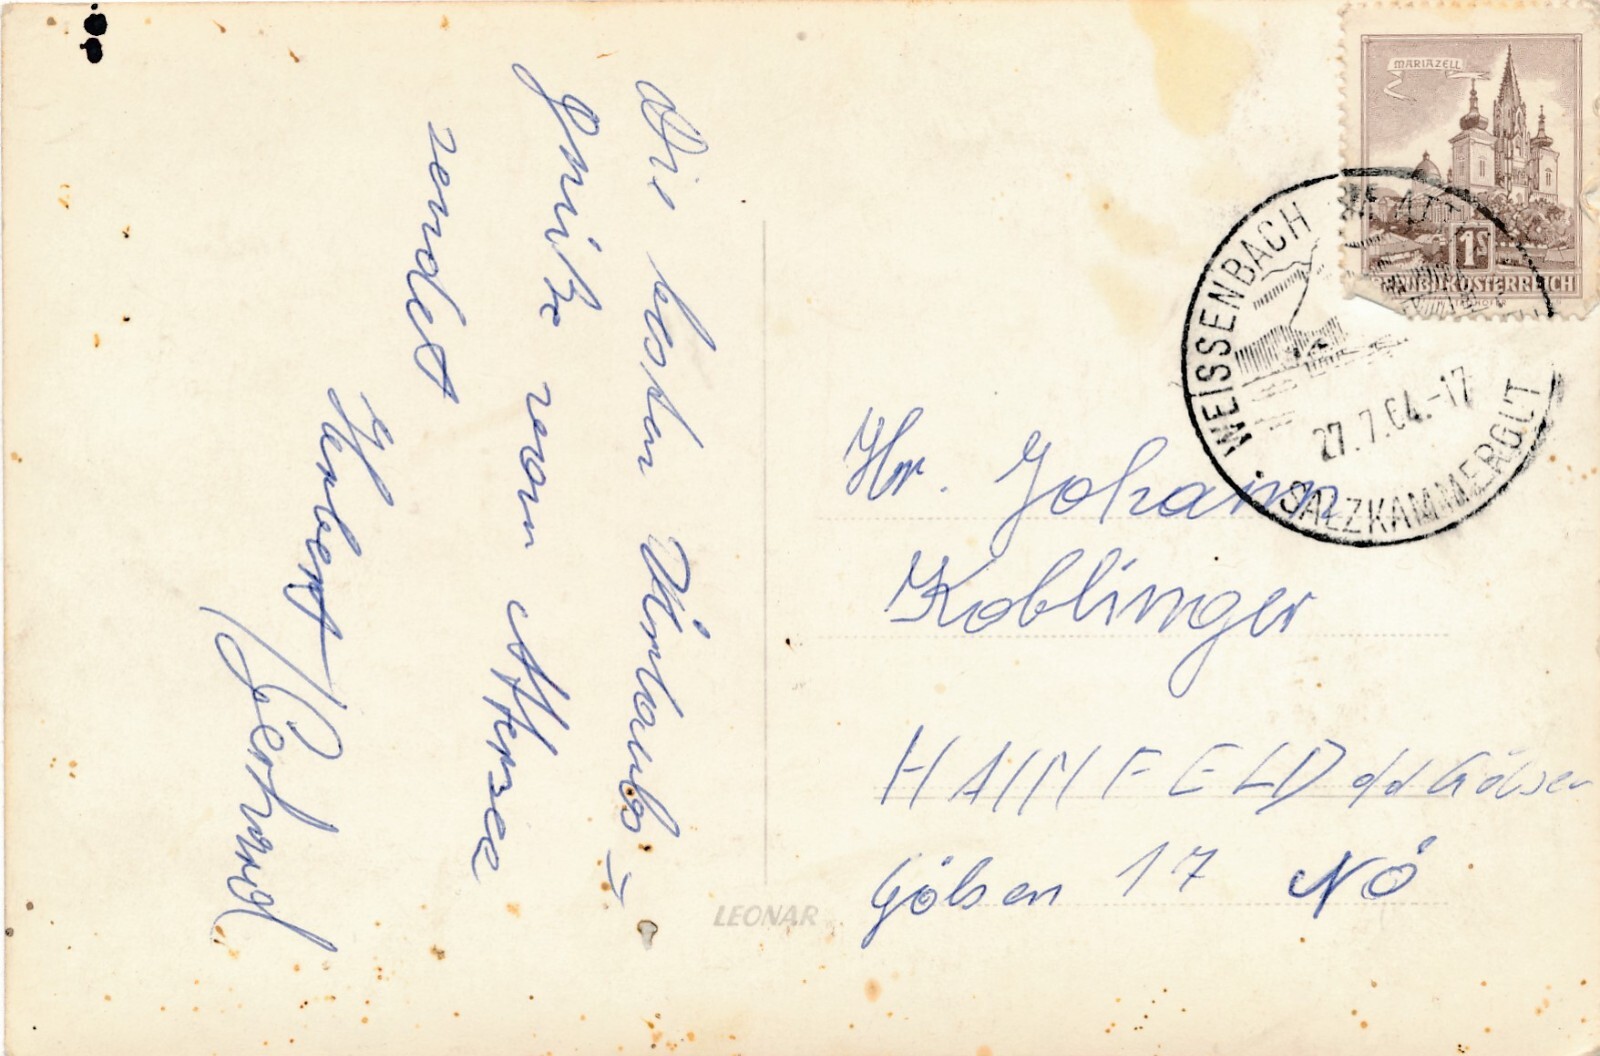 Die besten Urlaubs
Grüße vom Attersee
sendet
Herbert
Gerhard
LEONAR
MARIAZELL
1S
REPUBLIK ÖSTERREICH
WEISSENBACH
27.7.64.-17
SALZKAMMERGUT
Hr. Johann
Koblinger
HAINFELD a/d Gölsen
Gölsen 17 NÖ